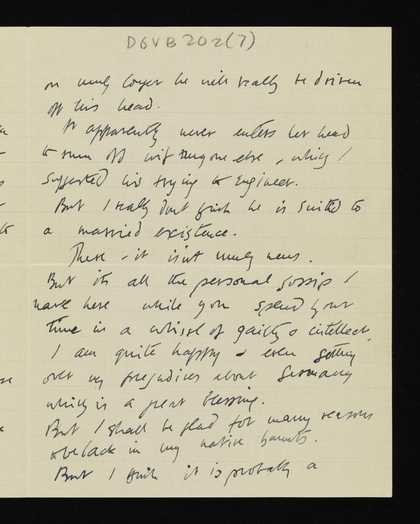 DGVB 202(7)
on much longer he will really be driven
off his head.
It apparently never enters her head
to run off with anyone else, which I
suggested his trying to engineer.
But I really don't think he is suited to
a married existence.
There - it isn't much news.
But it's all the personal gossip I
have here while you spend your
time in a whirl of gaiety & intellect.
I am quite happy & even getting
over my prejudices about Germany
which is a great blessing.
But I shall be glad for many reasons
to be back in my native haunts.
But I think it is probably a